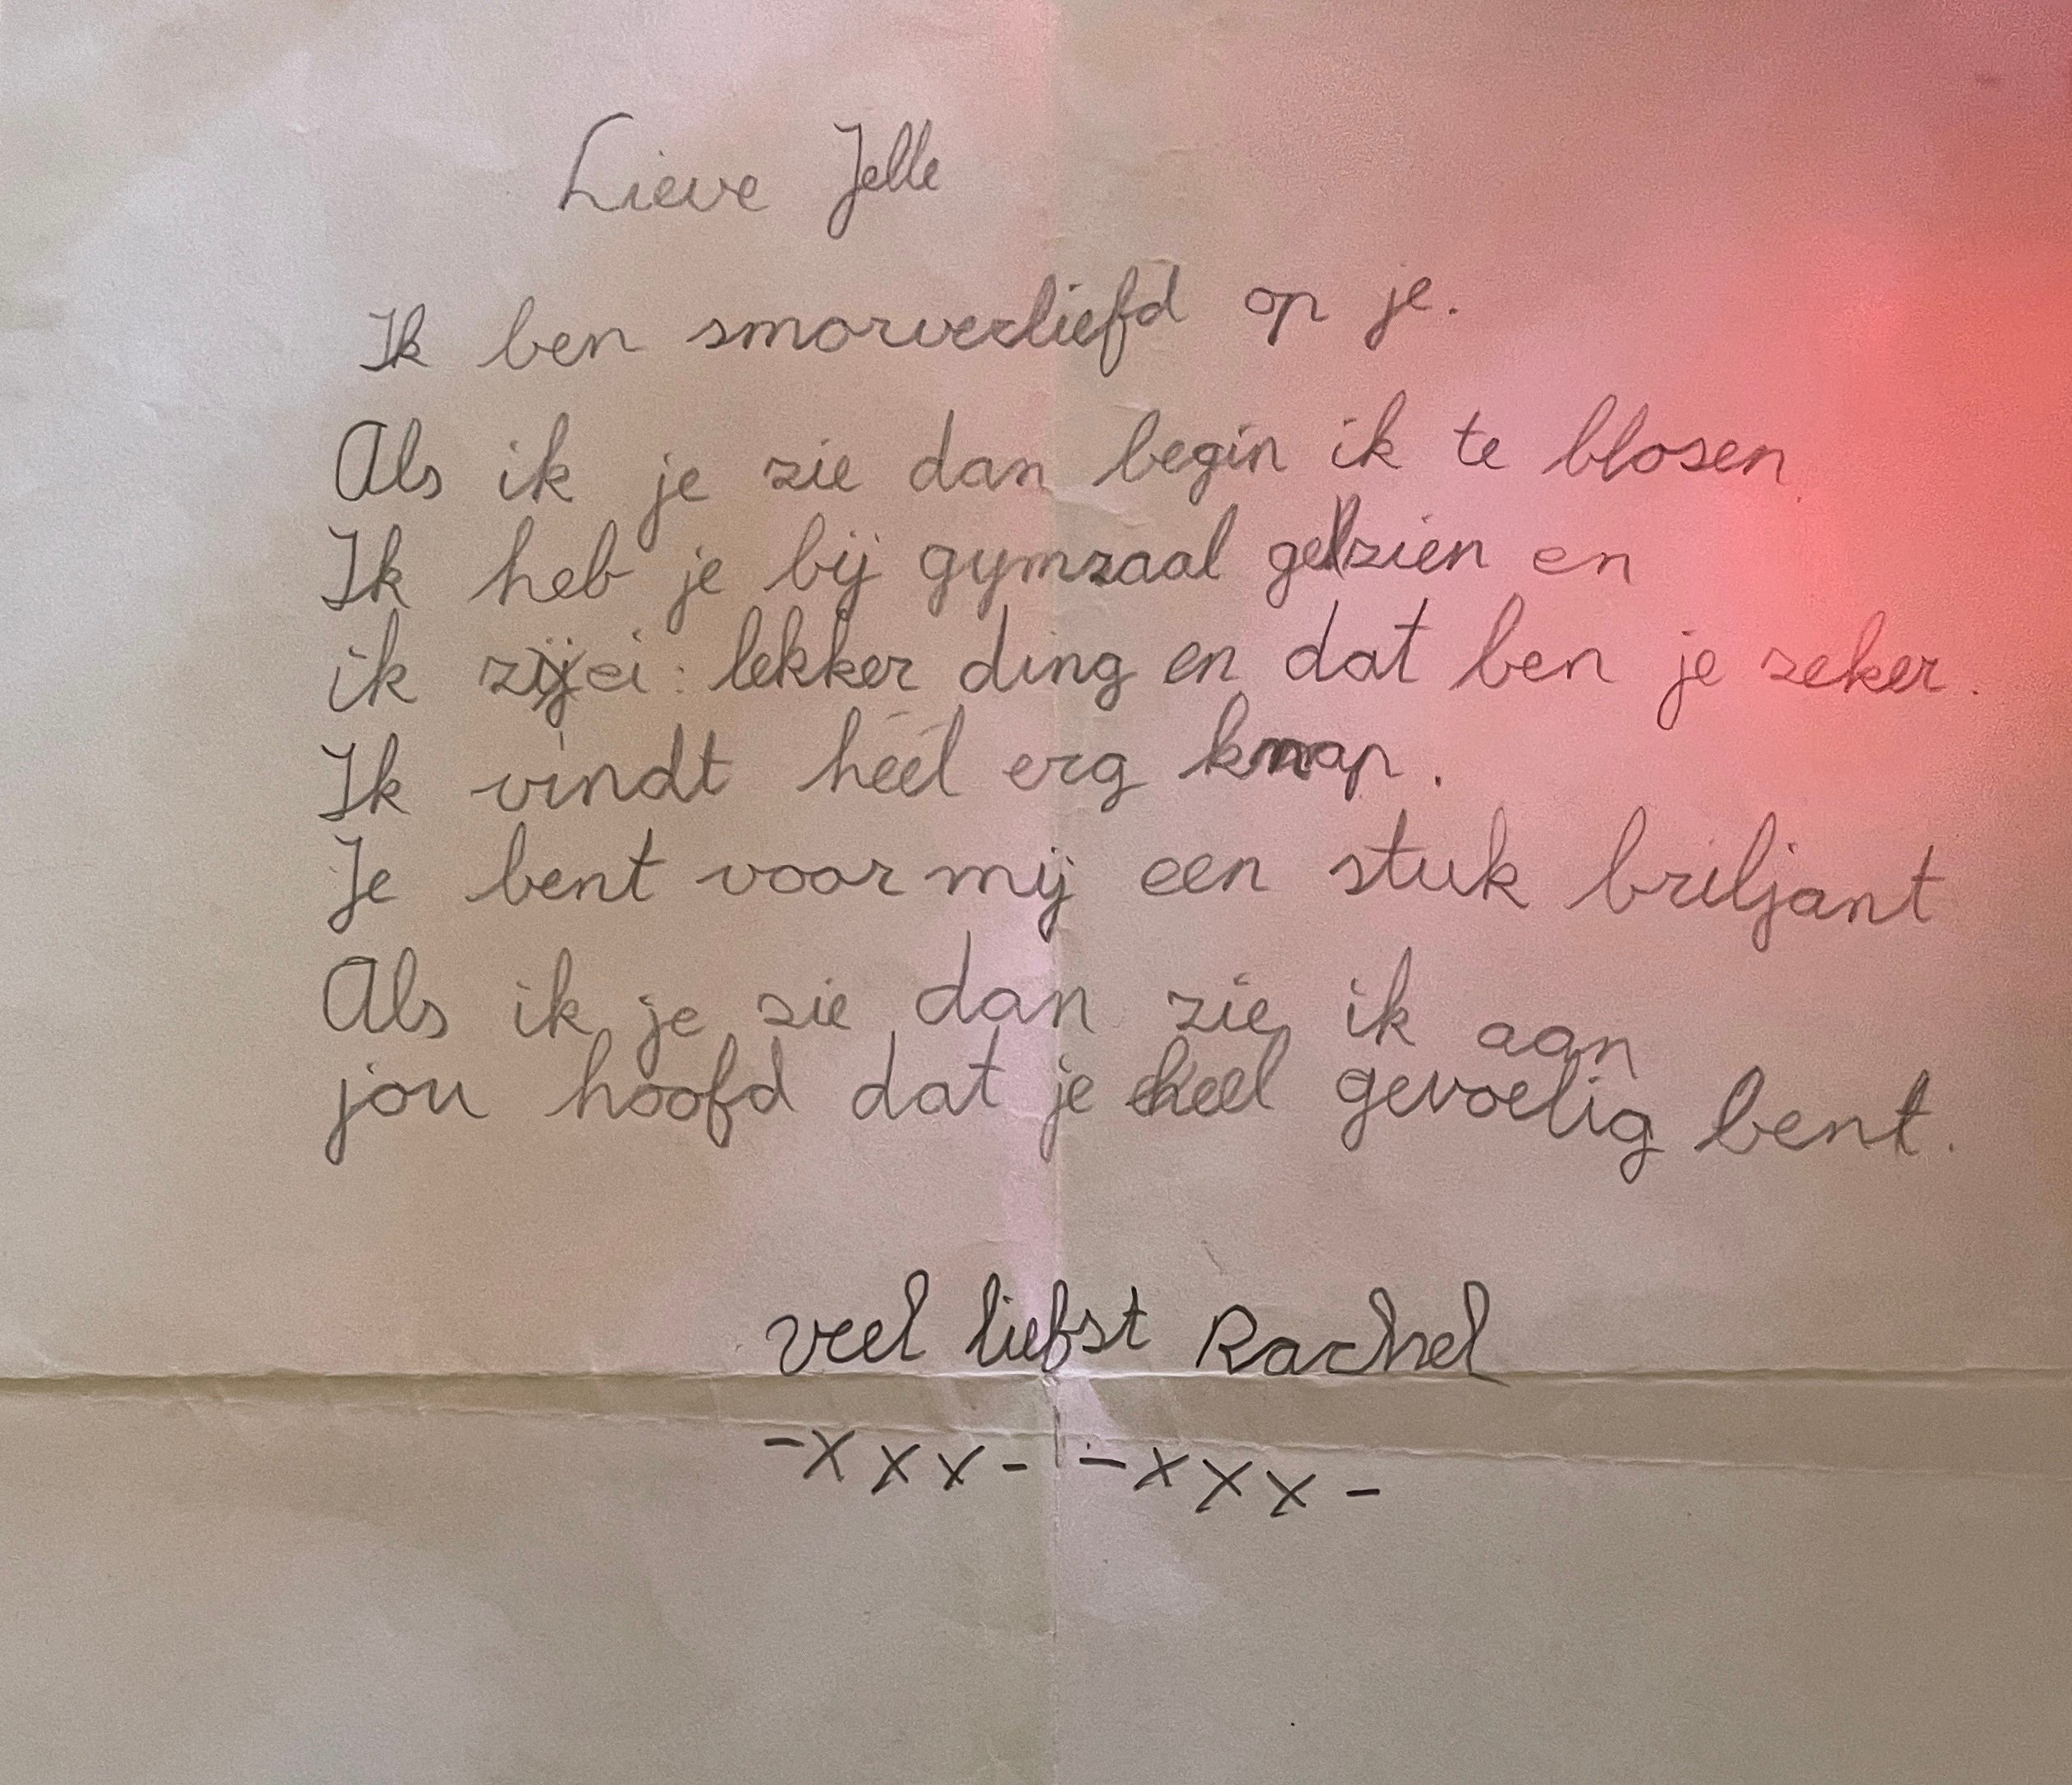 Lieve Jelle
Ik ben smorverliefd op je.
Als ik je zie dan begin ik te blosen.
Ik heb je bij gymzaal gezien en
ik zei: lekker ding en dat ben je zeker.
Ik vindt héél erg knap.
Je bent voor mij een stuk briljant
Als ik je zie dan zie ik aan
jou hoofd dat je heel gevoelig bent.
veel liefst Rachel
-xxx- -xxx-